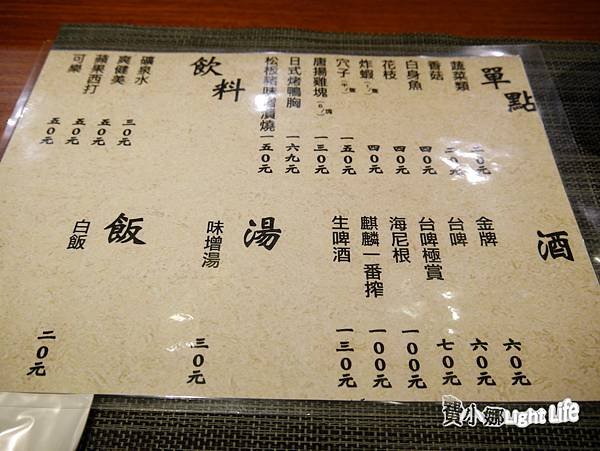 單點
蔬菜類 二0元
香菇 二0元
白身魚 四0元
花枝 四0元
炸蝦 四0元
穴子 一五0元
唐揚雞塊 一三0元
日式烤鴨胸 一六九元
松板豬味噌漬燒 一五0元
飲料
礦泉水 三0元
爽健美 五0元
蘋果西打 五0元
可樂 五0元
酒
金牌 六0元
台啤 六0元
台啤極賞 七0元
海尼根 一00元
麒麟一番搾 一00元
生啤酒 一三0元
湯
味增湯 三0元
飯
白飯 二0元
寶小娜Light Life